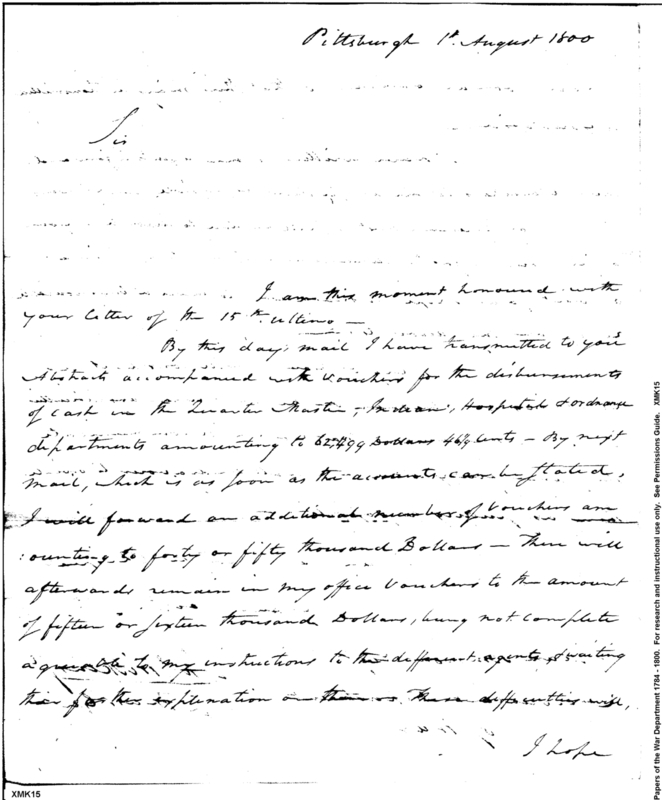 Pittsburgh 1st August 1800
Sir
I am this moment honoured with
your letter of the 15th ultimo —
By this day's mail I have transmitted to you 3
Abstracts accompanied with Vouchers for the disbursements
of Cash in the Quarter Master, Indian, Hospital & ordnance
departments amounting to Dollars Cents — By next
Mail, which is as soon as the accounts can be stated,
I will forward an additional number of Vouchers am
:ounting to forty or fifty thousand Dollars — There will
afterwards remain in my office Vouchers to the amount
of fifteen or sixteen thousand Dollars, being not complete
agreeable to my instructions to the different agents & waiting
for their explenation on them These difficulties will,
I hope
XMK15
Papers of the War Department 1784 - 1800. For research and instructional use only. See Permissions Guide. XMK15